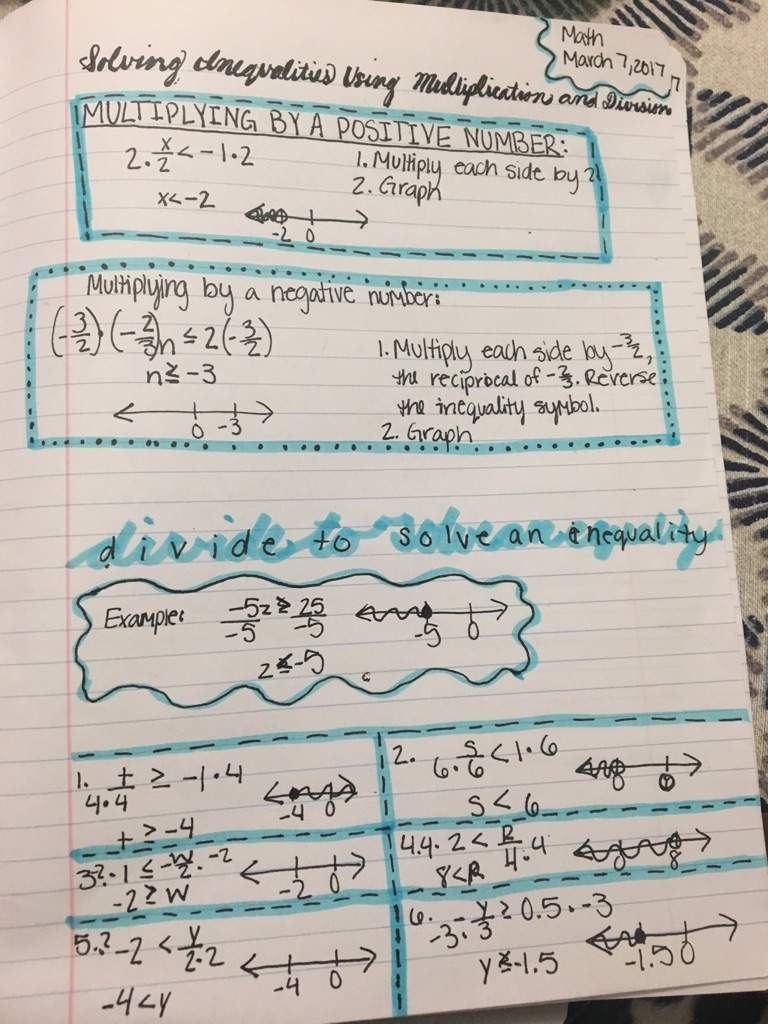 Math
March 7, 2017
Solving Inequalities Using Multiplication and Division
MULTIPLYING BY A POSITIVE NUMBER:
2 · x/2 < -1 · 2
1. Multiply each side by 2
x < -2
2. Graph
-2 0
Multiplying by a negative number:
(-3/2) · (-2/3)n ≤ 2(-3/2)
n ≥ -3
1. Multiply each side by -3/2,
the reciprocal of -2/3. Reverse
the inequality symbol.
2. Graph
0 -3
divide to solve an inequality
Example: -5z/-5 ≥ 25/-5
-5 0
z ≤ -5
1. t/4 · 4 ≥ -1 · 4
-4 0
t ≥ -4
2. 6 · s/6 < 1 · 6
0
s < 6
3. · 1 ≤ -w/2 · -2
-2 0
-2 ≥ w
4. 4 · 2 < R/4 · 4
0 8
8 < R
5. 2 · -2 < y/2 · 2
-4 0
-4 < y
6. -3 · -y/3 ≥ 0.5 · -3
-1.5 0
y ≤ -1.5